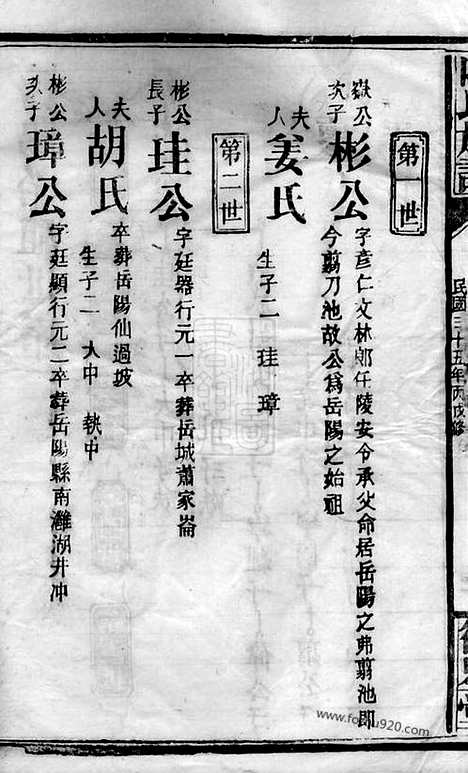 第一世
嶽公次子 彬公 字彥仁文林郎任陵安令承父命居岳陽之弗翦池即
今翦刀池故公為岳陽之始祖
夫人 姜氏 生子二 珪 璋
第二世
彬公長子 珪公 字廷器行元一卒葬岳城蕭家崙
夫人 胡氏 卒葬岳陽仙過坡
生子二 大中 執中
彬公次子 璋公 字廷顯行元二卒葬岳陽縣南灘湖井冲
民國三十五年丙戌修
www.foxhu920.com